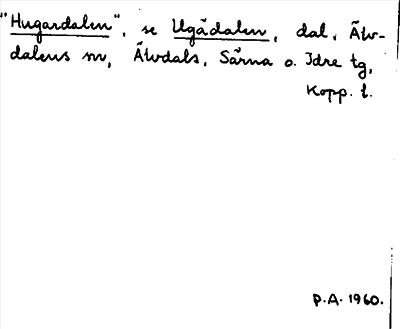 "Hugardalen", se Ugådalen, dal, Älv-
dalens m, Älvdals, Särna o. Idre tg,
Kopp. l.
P.A. 1960.